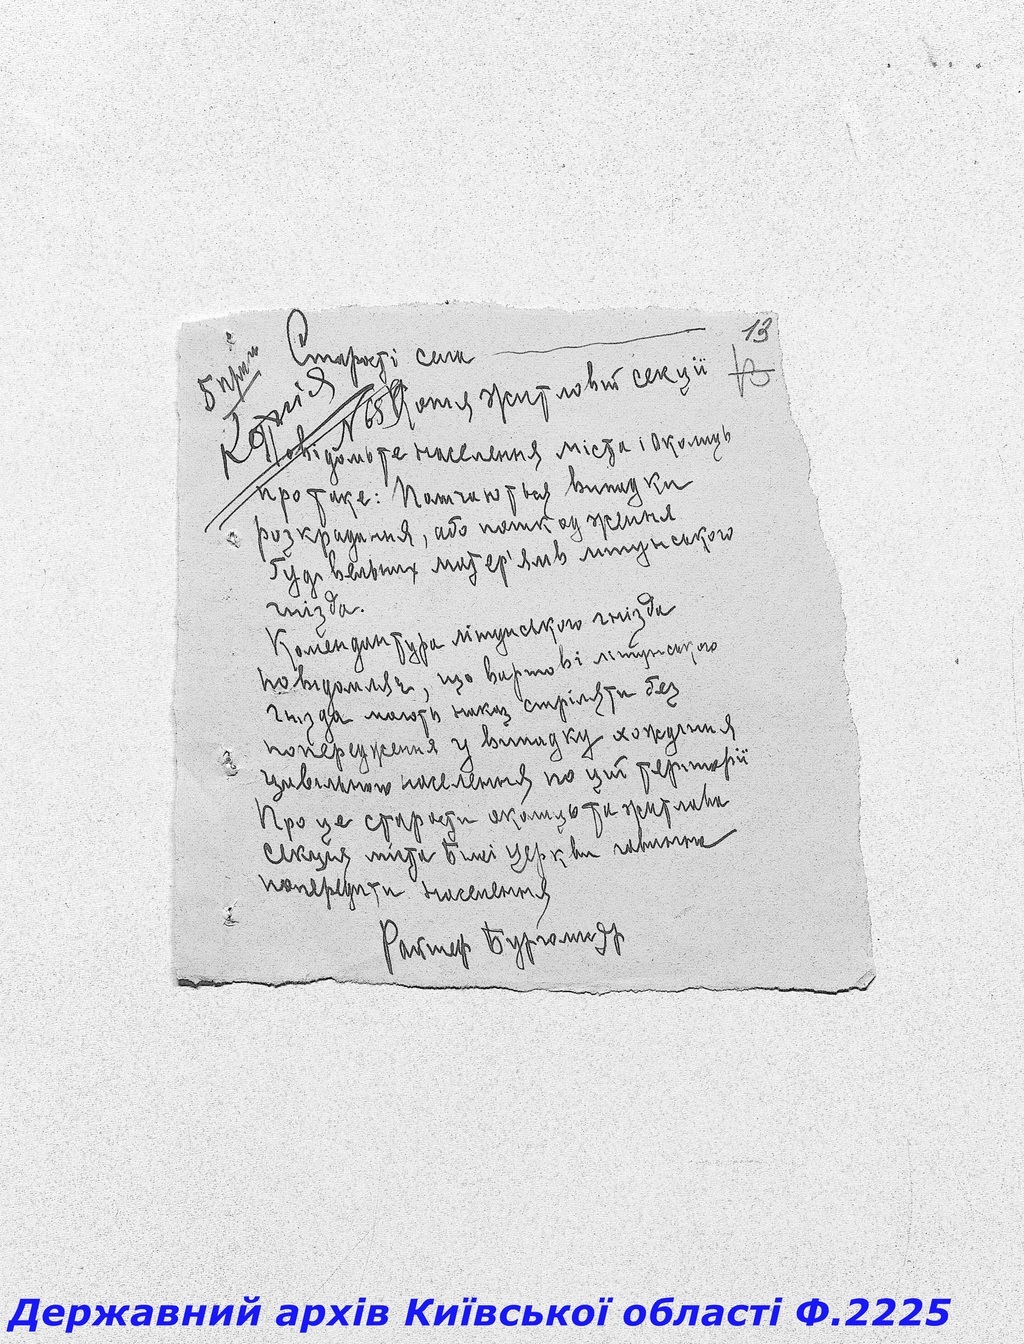 13
5 прим
Старості села
Копія
№ 65 Копія Житловій секції
Повідомьте населення міста і околиць
про таке: Помічаються випадки
розкрадання, або пошкодження
будівельних матер'ялів літунського
гнізда.
Комендантура літунського гнізда
повідомляє, що вартові літунського
гнізда мають наказ стріляти без
попередження у випадку ходження
цивільного населення по цій території
Про це старости околиць та житлова
секція міста Білої Церкви повинні
попередити населення
Бургомістр
Державний архів Київської області Ф.2225